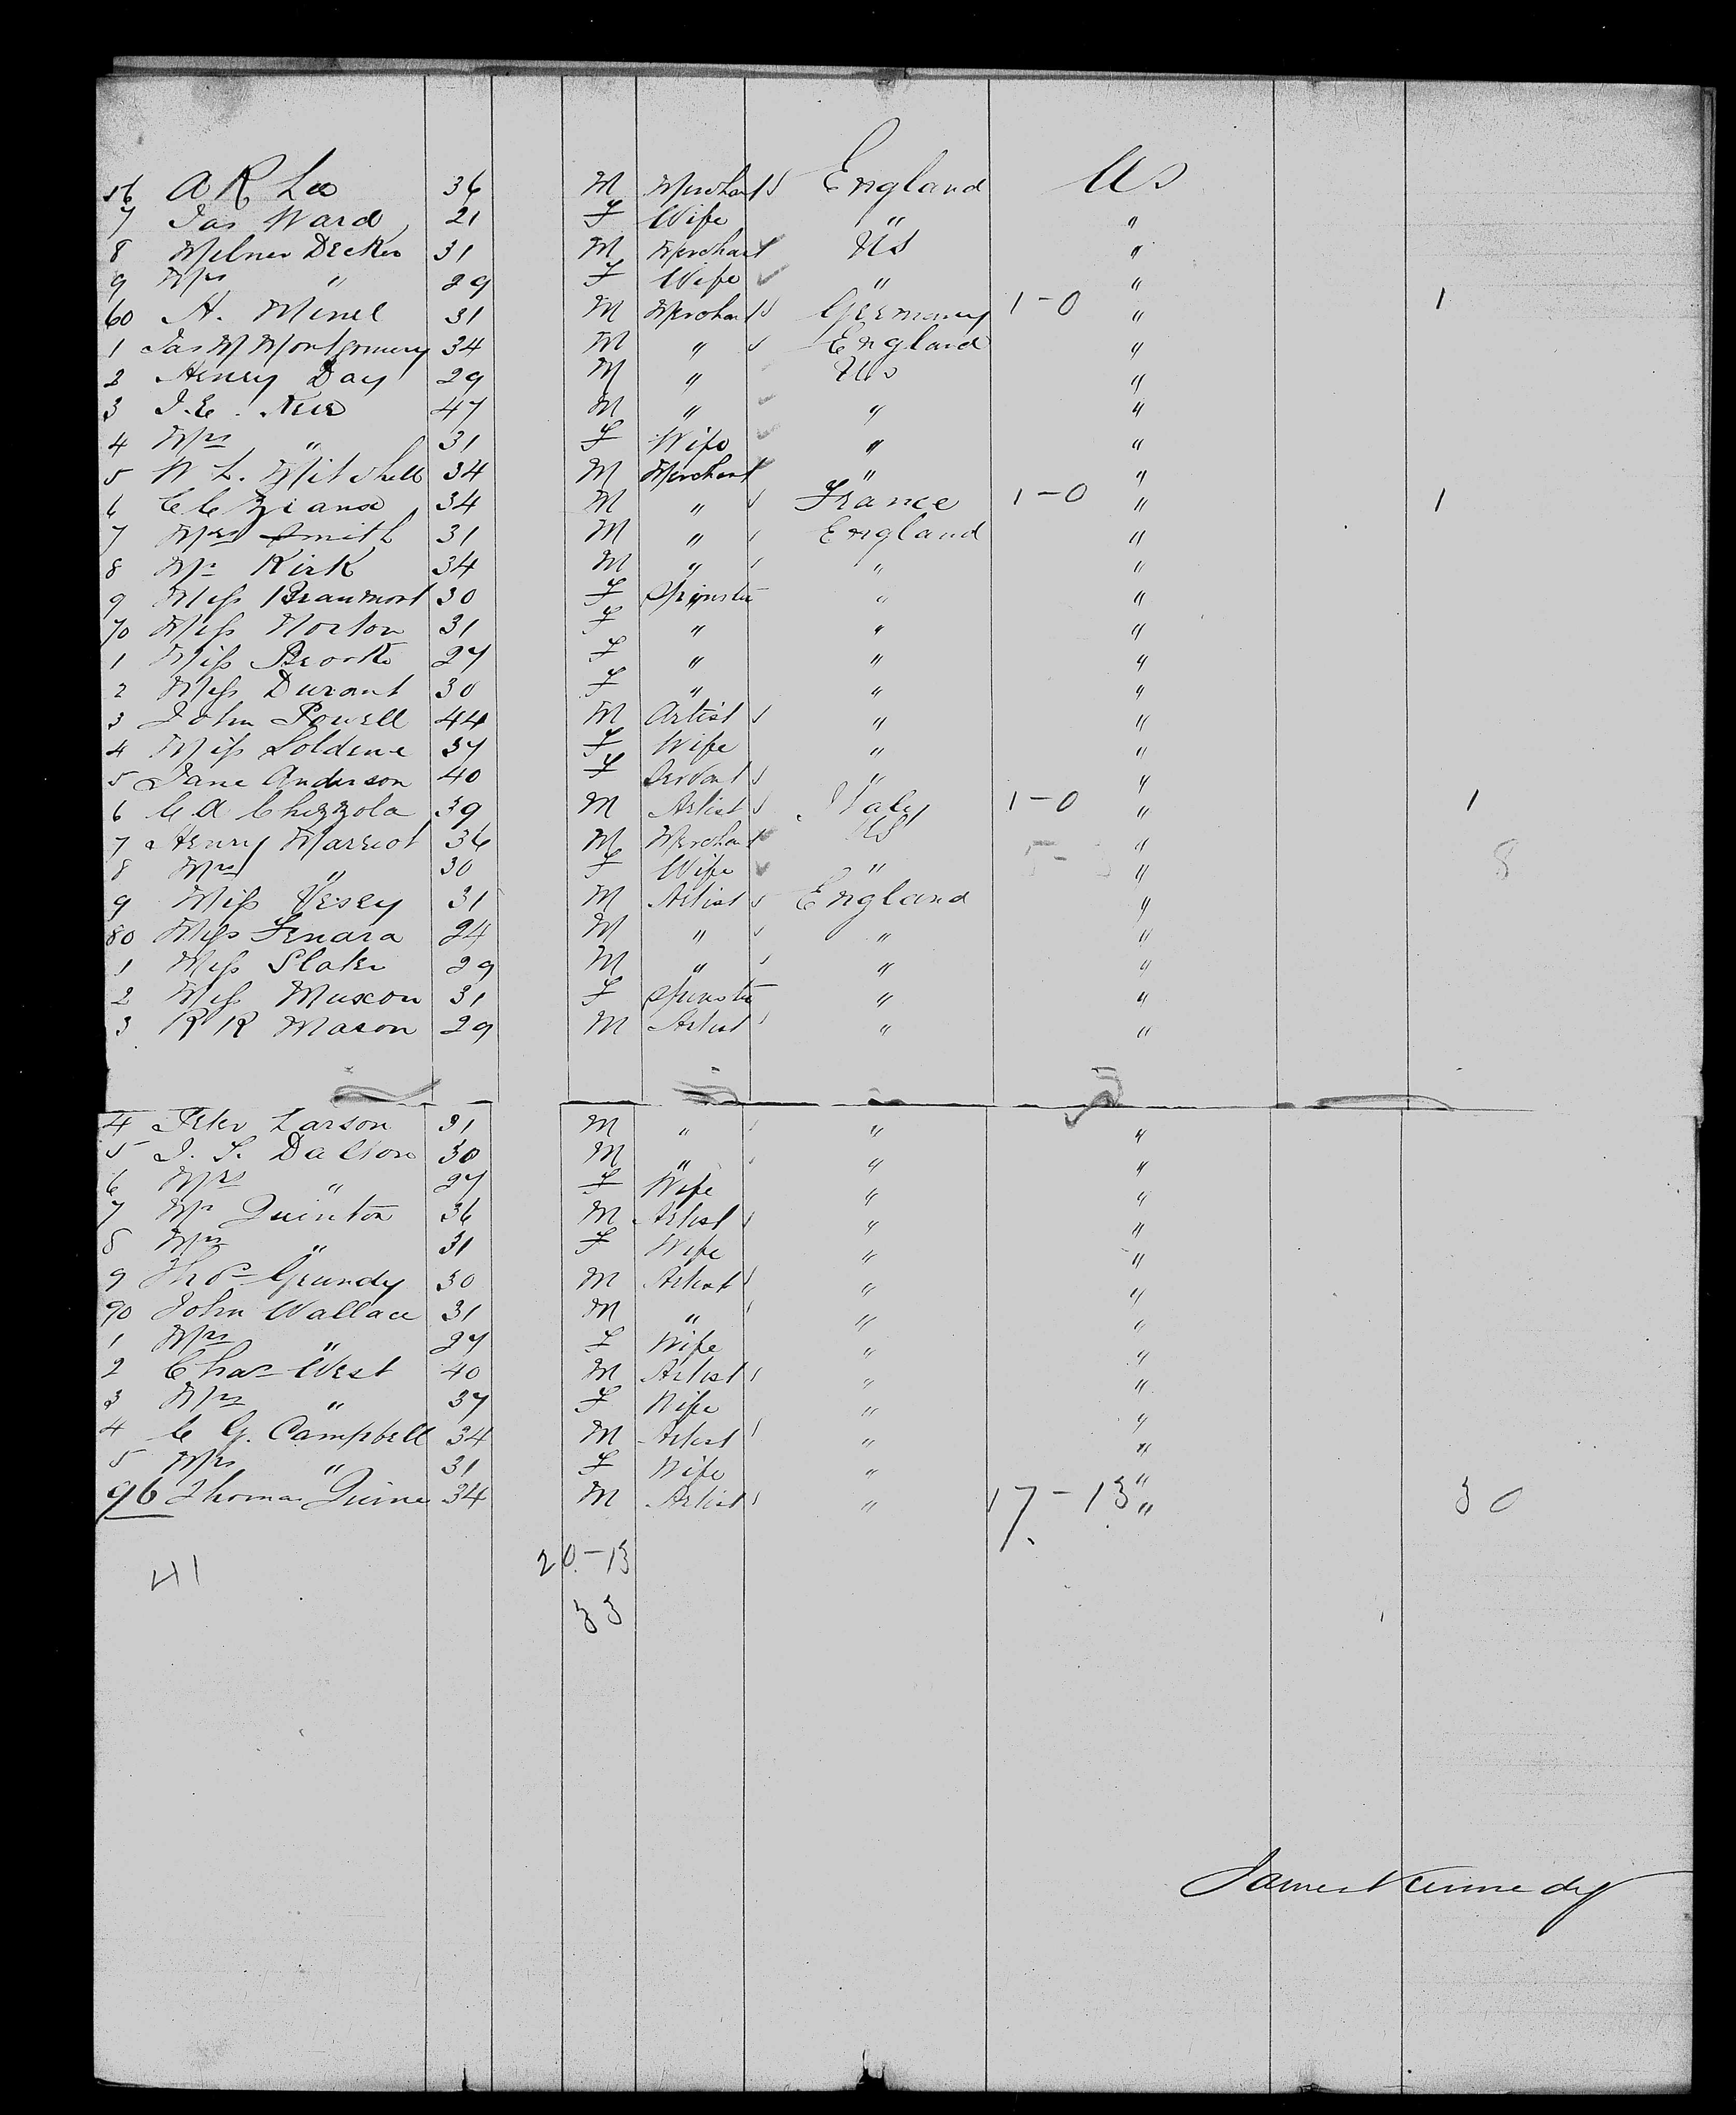 56 A R Lee 36 M Merchant England US
7 Jas Ward 21 F Wife " "
8 Milner Decker 31 M Merchant US "
9 Mrs " 29 F Wife " "
60 H. Minel 31 M Merchant Germany 1-0 " 1
1 Jas M Montgomery 34 M " England "
2 Henry Day 29 M " US "
3 J. E. 47 M " " "
4 Mrs " 31 F Wife " "
5 W L. Mitchell 34 M Merchant " "
6 C C 34 M " France 1-0 " 1
7 Mrs Smith 31 M " England "
8 Mr Kirk 34 M " " "
9 Miss Beaumont 30 F Spinster " "
70 Miss Norton 31 F " " "
1 Miss Brooke 27 F " " "
2 Miss Durant 30 F " " "
3 John Powell 44 M Artist " "
4 Miss Soldene 37 F Wife " "
5 Jane Anderson 40 F Servant " "
6 C A Chizzola 39 M Artist Italy 1-0 " 1
7 Henry Marriot 36 M Merchant US "
8 Mrs " 30 F Wife " " 8
9 Miss Vesey 31 M Artist England "
80 Miss 24 M " " "
1 Miss Slater 29 M " " "
2 Miss Muxon 31 F Spinster " "
3 R R Mason 29 M Artist " "
4 Peter Larson 31 M " " "
5 J. S. Dalton 30 M " " "
6 Mrs " 27 F Wife " "
7 Mr Quinton 36 M Artist " "
8 Mrs " 31 F Wife " "
9 Thos Grundy 30 M Artist " "
90 John Wallace 31 M " " "
1 Mrs " 27 F Wife " "
2 Chas West 40 M Artist " "
3 Mrs " 37 F Wife " "
4 C G. Campbell 34 M Artist " "
5 Mrs " 31 F Wife " "
96 Thomas Quine 34 M Artist " 17-13 " 30
41 20-13
33
James Kennedy